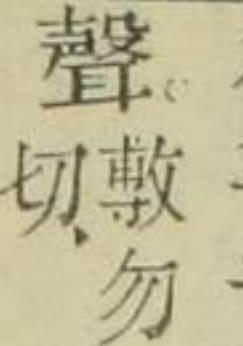 聲。
敷勿
切、